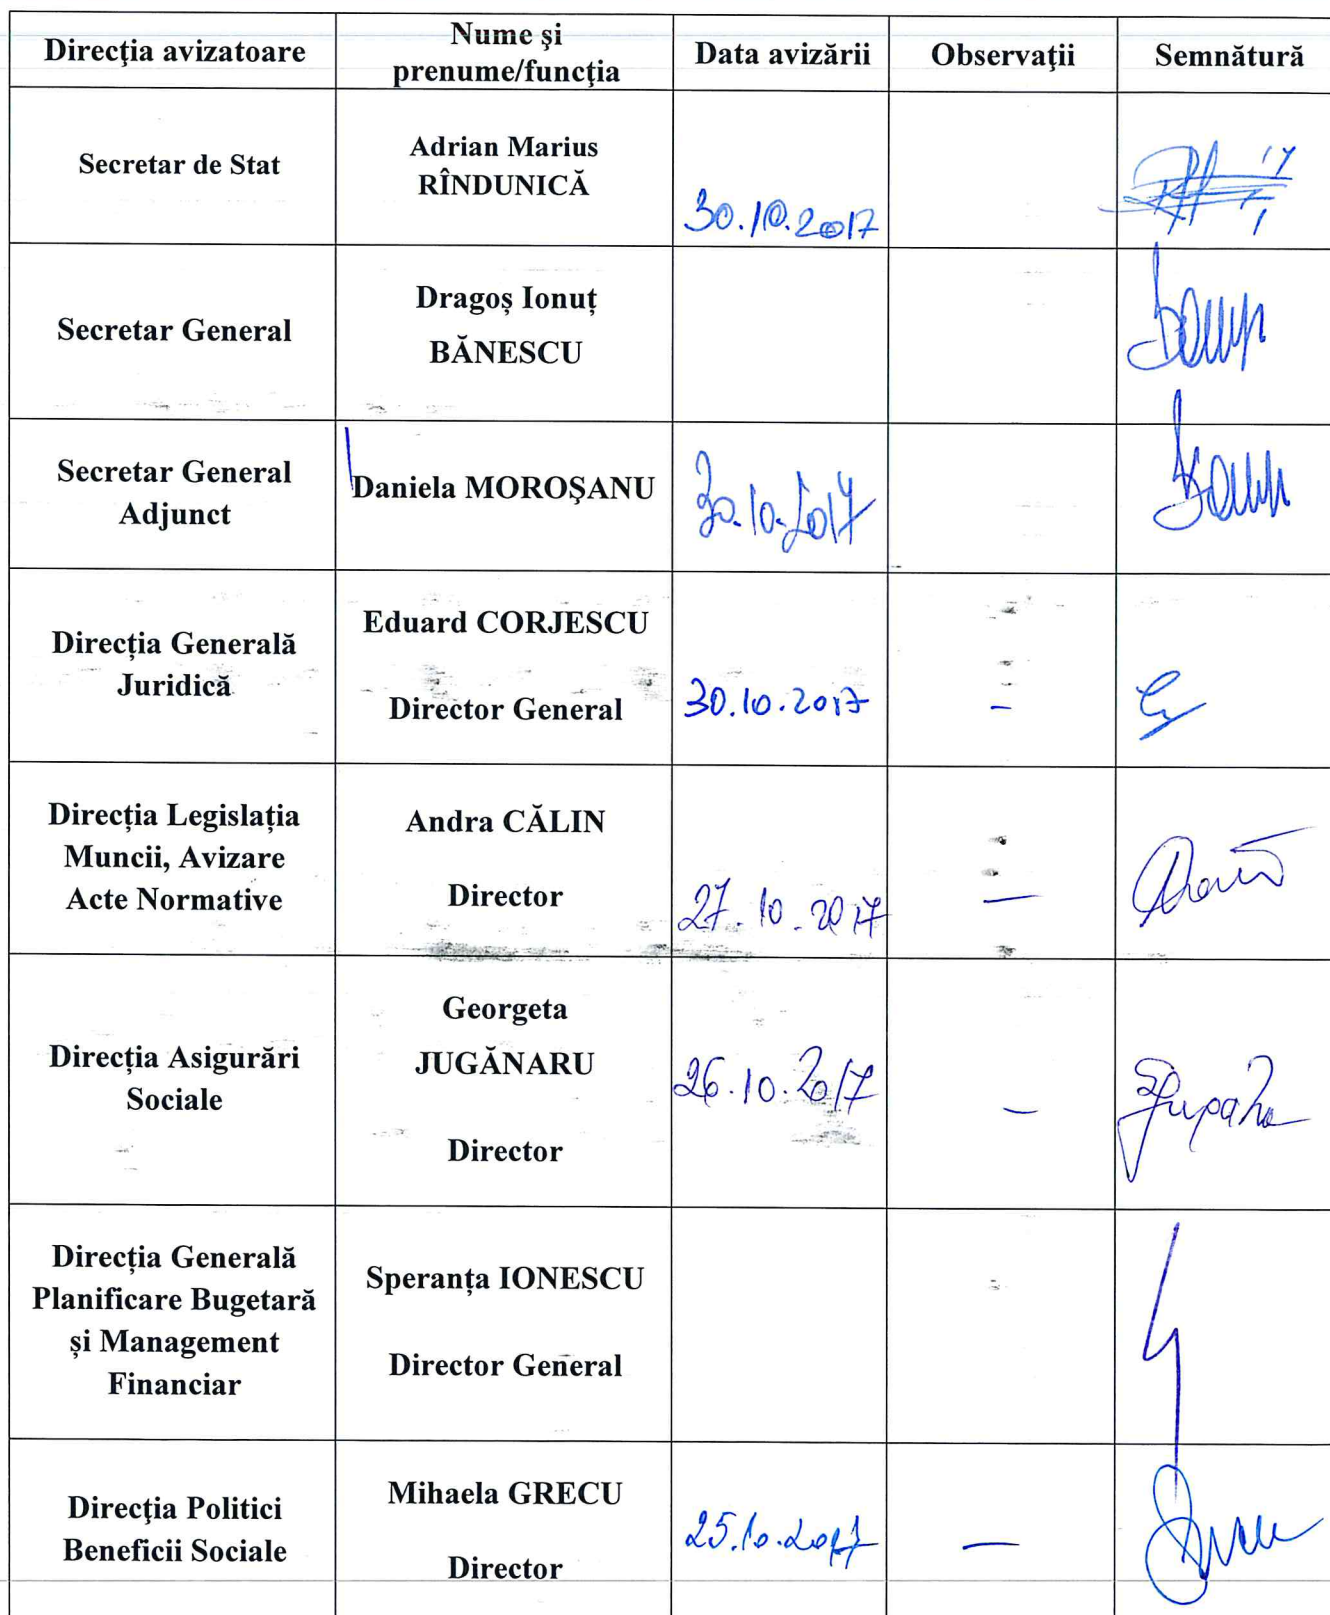 Direcţia avizatoare
Nume şi
prenume/funcţia
Data avizării
Observaţii
Semnătură
Secretar de Stat
Adrian Marius
RÎNDUNICĂ
30.10.2017
Secretar General
Dragoș Ionuț
BĂNESCU
Secretar General
Adjunct
Daniela MOROŞANU
30.10.2017
Direcția Generală
Juridică
Eduard CORJESCU
Director General
30.10.2017
-
Direcția Legislația
Muncii, Avizare
Acte Normative
Andra CĂLIN
Director
27.10.2017
—
Direcția Asigurări
Sociale
Georgeta
JUGĂNARU
Director
26.10.2017
—
Direcția Generală
Planificare Bugetară
și Management
Financiar
Speranța IONESCU
Director General
Direcţia Politici
Beneficii Sociale
Mihaela GRECU
Director
25.10.2017
—